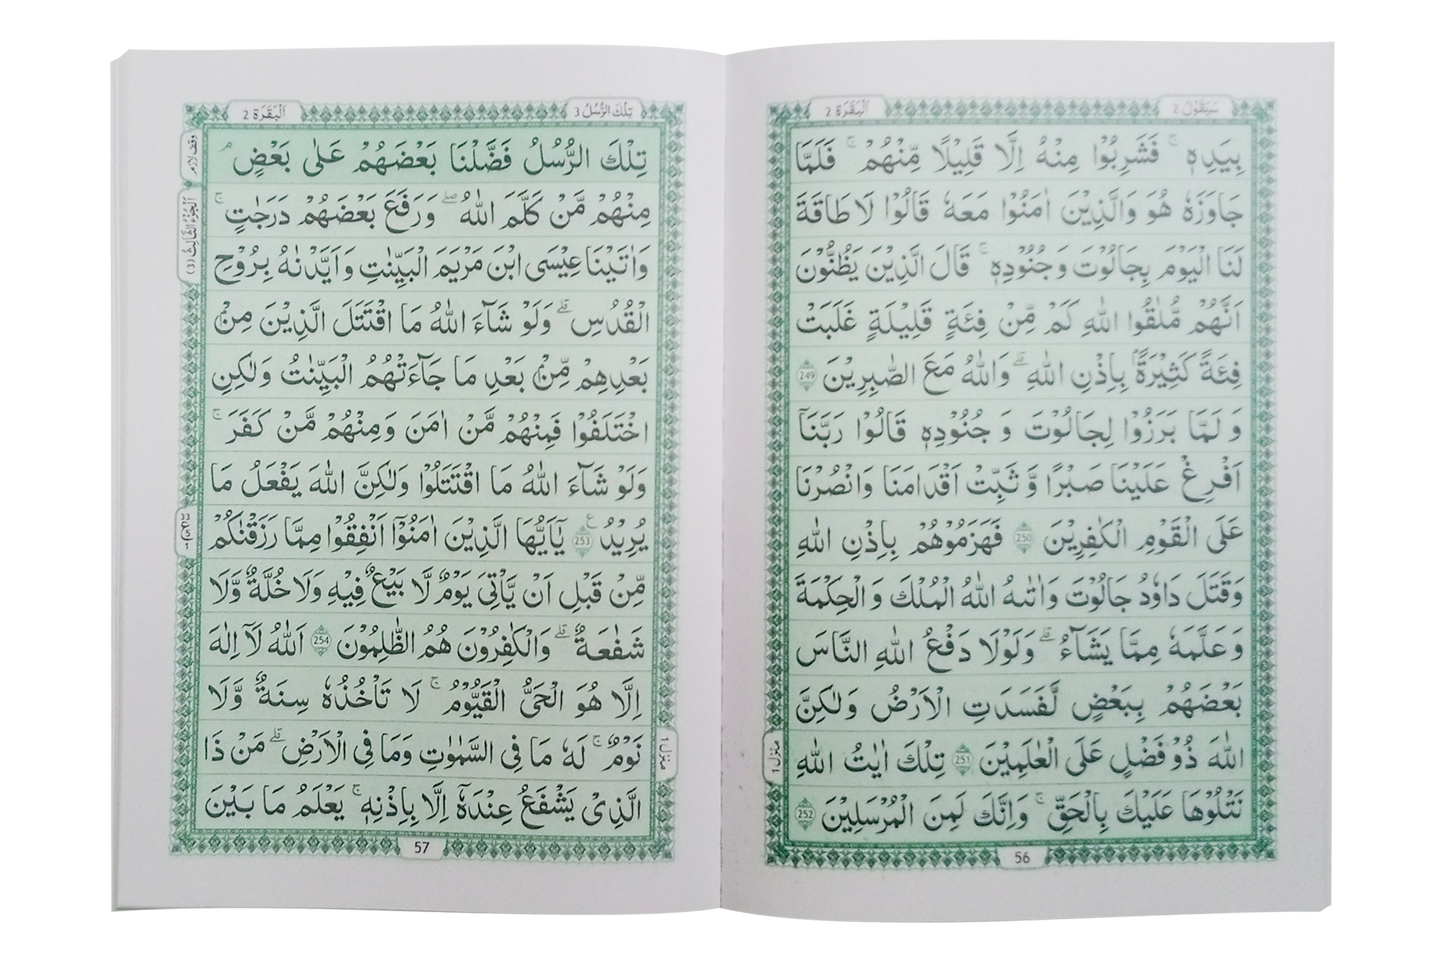 سَيَقُوْلُ 2
اَلْبَقَرَة 2
بِيَدِهٖ ۚ فَشَرِبُوْا مِنْهُ اِلَّا قَلِيْلًا مِّنْهُمْ ۚ فَلَمَّا
جَاوَزَهٗ هُوَ وَالَّذِيْنَ اٰمَنُوْا مَعَهٗ قَالُوْا لَا طَاقَةَ
لَنَا الْيَوْمَ بِجَالُوْتَ وَجُنُوْدِهٖ ۚ قَالَ الَّذِيْنَ يَظُنُّوْنَ
اَنَّهُمْ مُّلٰقُوا اللّٰهِ كَمْ مِّنْ فِئَةٍ قَلِيْلَةٍ غَلَبَتْ
فِئَةً كَثِيْرَةًۢ بِاِذْنِ اللّٰهِ ۗ وَاللّٰهُ مَعَ الصّٰبِرِيْنَ 249
وَ لَمَّا بَرَزُوْا لِجَالُوْتَ وَ جُنُوْدِهٖ قَالُوْا رَبَّنَآ
اَفْرِغْ عَلَيْنَا صَبْرًا وَّ ثَبِّتْ اَقْدَامَنَا وَانْصُرْنَا
عَلَى الْقَوْمِ الْكٰفِرِيْنَ 250 فَهَزَمُوْهُمْ بِاِذْنِ اللّٰهِ
وَقَتَلَ دَاوٗدُ جَالُوْتَ وَاٰتٰىهُ اللّٰهُ الْمُلْكَ وَ الْحِكْمَةَ
وَ عَلَّمَهٗ مِمَّا يَشَآءُ ۗ وَلَوْلَا دَفْعُ اللّٰهِ النَّاسَ
بَعْضَهُمْ بِبَعْضٍ لَّفَسَدَتِ الْاَرْضُ وَلٰكِنَّ
اللّٰهَ ذُوْ فَضْلٍ عَلَى الْعٰلَمِيْنَ 251 تِلْكَ اٰيٰتُ اللّٰهِ
نَتْلُوْهَا عَلَيْكَ بِالْحَقِّ ۚ وَاِنَّكَ لَمِنَ الْمُرْسَلِيْنَ 252
منزل ١
56
تِلْكَ الرُّسُلُ 3
اَلْبَقَرَة 2
وقف لازم
اَلْجُزْءُ الثَّالِثُ (3)
تِلْكَ الرُّسُلُ فَضَّلْنَا بَعْضَهُمْ عَلٰى بَعْضٍ ۘ
مِنْهُمْ مَّنْ كَلَّمَ اللّٰهُ ۖ وَرَفَعَ بَعْضَهُمْ دَرَجٰتٍ ۚ
وَاٰتَيْنَا عِيْسَى ابْنَ مَرْيَمَ الْبَيِّنٰتِ وَاَيَّدْنٰهُ بِرُوْحِ
الْقُدُسِ ۗ وَلَوْ شَآءَ اللّٰهُ مَا اقْتَتَلَ الَّذِيْنَ مِنْۢ
بَعْدِهِمْ مِّنْۢ بَعْدِ مَا جَآءَتْهُمُ الْبَيِّنٰتُ وَلٰكِنِ
اخْتَلَفُوْا فَمِنْهُمْ مَّنْ اٰمَنَ وَمِنْهُمْ مَّنْ كَفَرَ ۚ
وَلَوْ شَآءَ اللّٰهُ مَا اقْتَتَلُوْا وَلٰكِنَّ اللّٰهَ يَفْعَلُ مَا
يُرِيْدُ 253 ع يٰٓاَيُّهَا الَّذِيْنَ اٰمَنُوْٓا اَنْفِقُوْا مِمَّا رَزَقْنٰكُمْ
33
ع
1
مِّنْ قَبْلِ اَنْ يَّاْتِيَ يَوْمٌ لَّا بَيْعٌ فِيْهِ وَلَا خُلَّةٌ وَّلَا
شَفَاعَةٌ ۗ وَالْكٰفِرُوْنَ هُمُ الظّٰلِمُوْنَ 254 اَللّٰهُ لَآ اِلٰهَ
اِلَّا هُوَ الْحَيُّ الْقَيُّوْمُ ۚ لَا تَاْخُذُهٗ سِنَةٌ وَّلَا
نَوْمٌ ۚ لَهٗ مَا فِى السَّمٰوٰتِ وَمَا فِى الْاَرْضِ ۗ مَنْ ذَا
الَّذِيْ يَشْفَعُ عِنْدَهٗٓ اِلَّا بِاِذْنِهٖ ۚ يَعْلَمُ مَا بَيْنَ
منزل ١
57